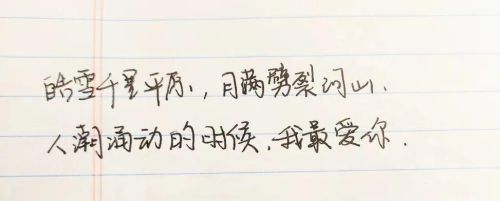 皓雪千里平原，月满劈裂河山.
人潮涌动的时候，我最爱你.